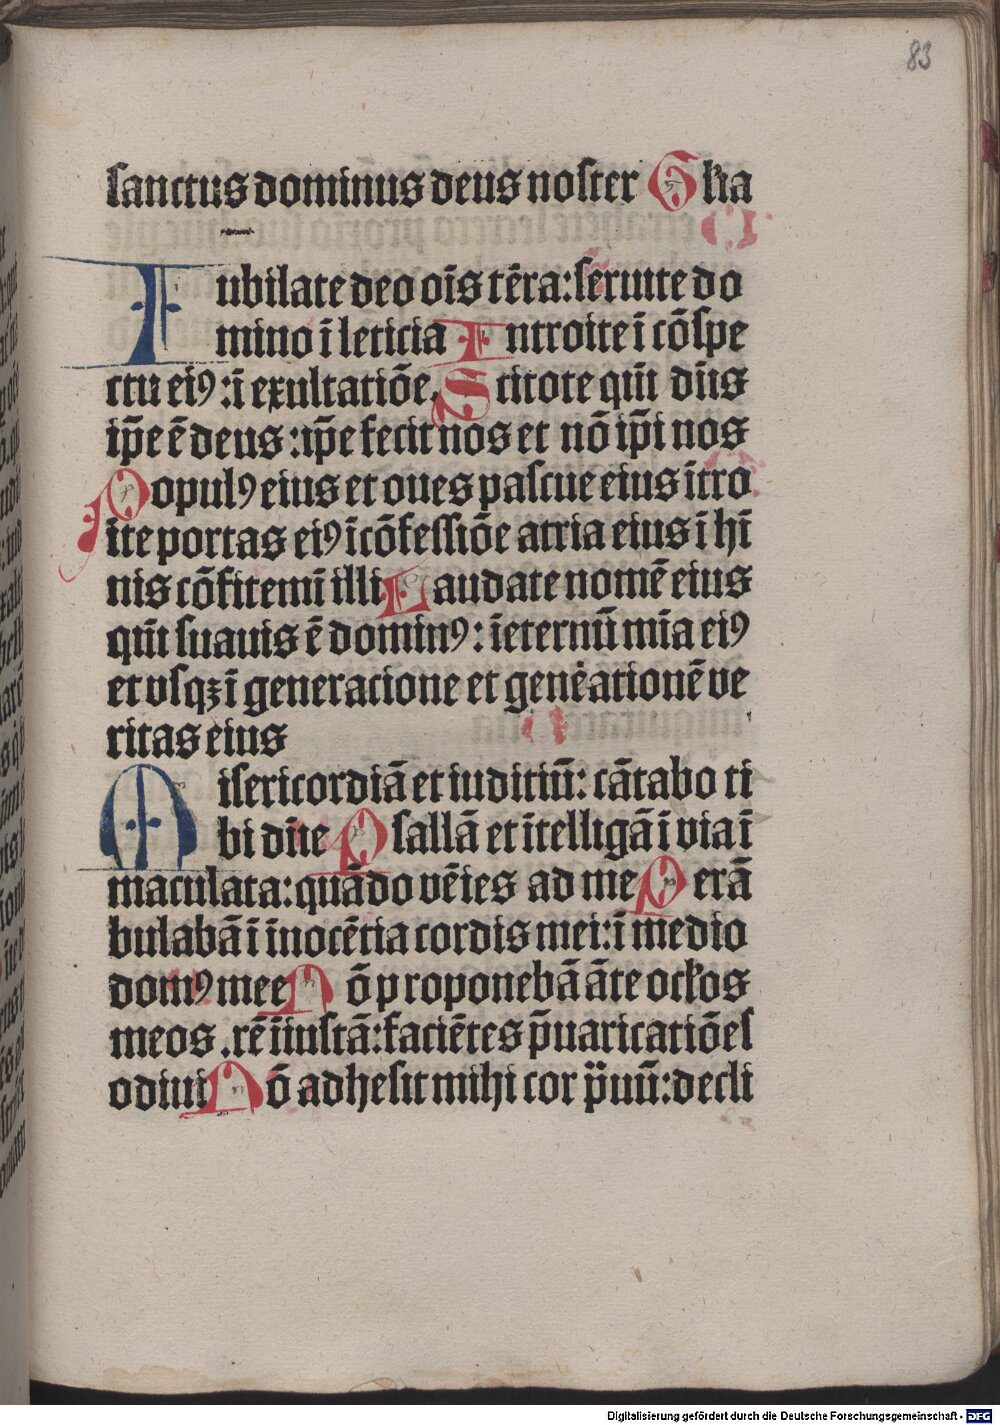 83
sanctus dominus deus noster Glia
Iubilate deo oīs tēra: seruite do
mino ī leticia Introite ī cōspe
ctu eiꝰ: ī exultatiōe. Scitote qm̄ dn̄s
ip̄e ē deus: ip̄e fecit nos et nō ip̄i nos
Populꝰ eius et oues pascue eius ītro
ite portas eiꝰ ī cōfessiōe atria eius ī hī
nis cōfitemī illi Laudate nomē eius
qm̄ suauis ē dominꝰ: ī eternū mīa eiꝰ
et vsqꝫ ī generacione et gen̄ationē ve
ritas eius
Misericordiā et iuditiū: cātabo ti
bi dn̄e Psallā et ītelligā ī via ī
maculata: quādo vēies ad me Perā
bulabā ī īnocētia cordis mei: ī medio
domꝰ mee Nō proponebā āte oclos
meos . rē īiustā: faciētes p̄uaricatiōes
odiui Nō adhesit mihi cor p̄uū: decli
Digitalisierung gefördert durch die Deutsche Forschungsgemeinschaft - DFG